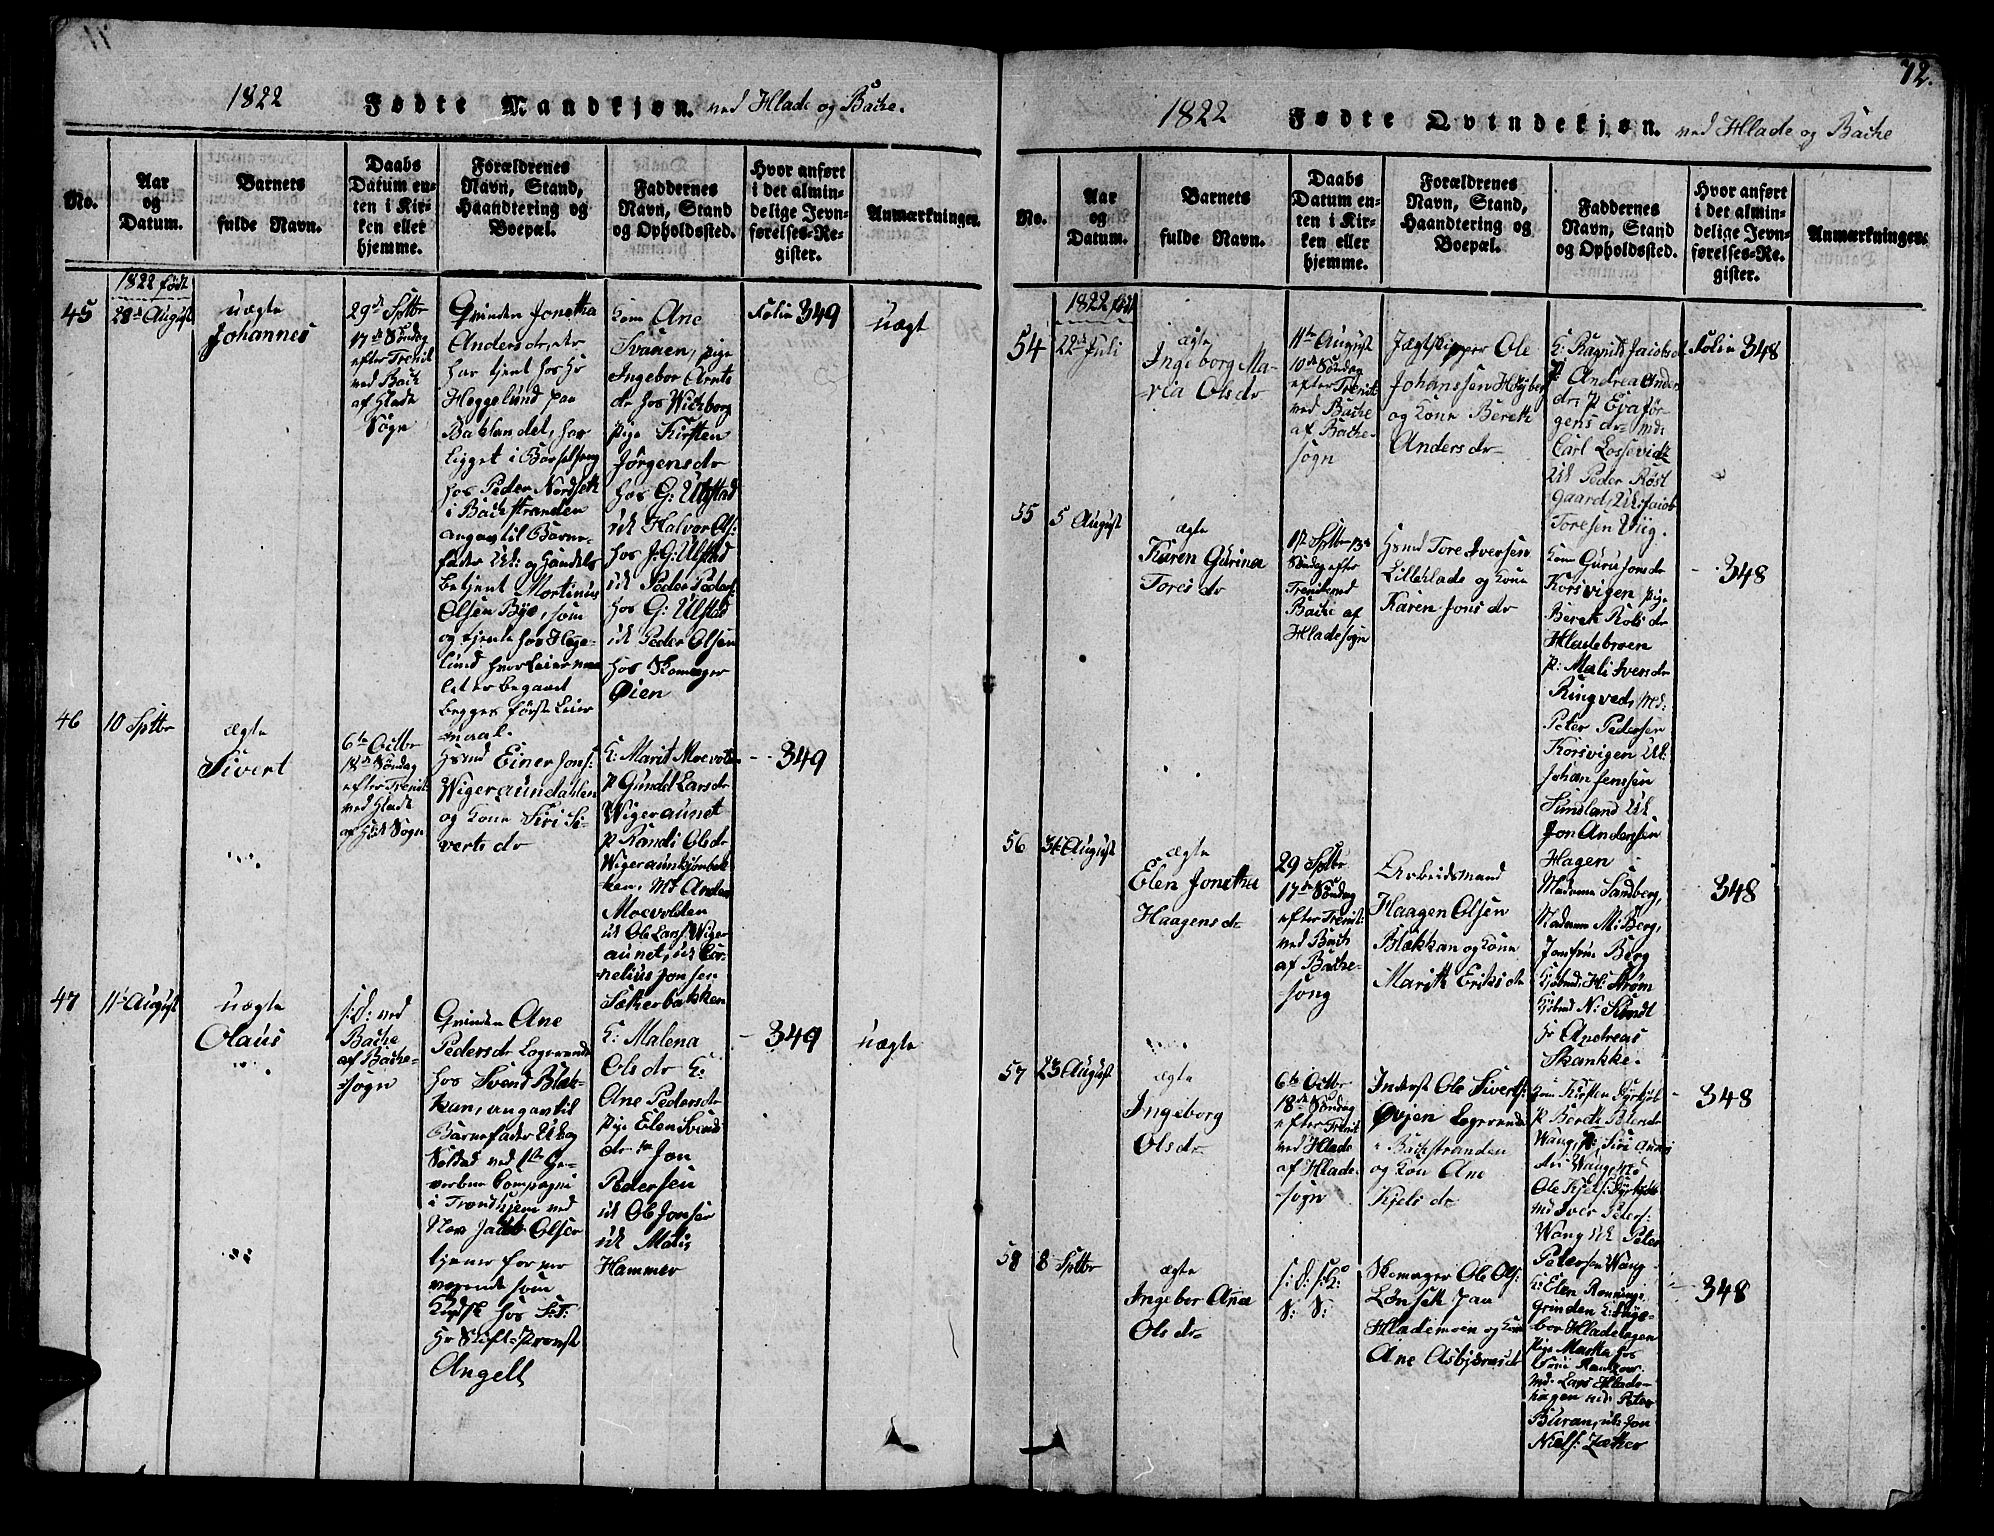 1822 Fødte Mandkjøn. ved Hlade og Bache.
No.
Aar
og
Datum.
Barnets
fulde Navn.
Daabs
Datum en-
ten i Kir-
ken eller
hjemme.
Forældrenes
Navn, Stand,
Haandtering og
Boepæl.
Faddernes
Navn, Stand
og Opholdssted.
Hvor anført
i det almin-
delige Jevn-
førelses-Re-
gister.
Anmærkninger.
1822 født
45
28de August
uægte
Johannes
29de Sptbr
17de Søndag
efter Trenit
ved Bach
af Hlade
Sogn
Qvinden Jonetha
Andersdr, der
har tjent hos Hr
Heggelund paa
Baklandet, har
ligget i Barselseng
hos Peder Nordseth
i Bachstranden
angav til Barne-
fader Uk: og Handels
betjent Mortinus
Olsen Bye, som
og tjente hos Hege-
lund hvor Leiermaa
let er begaaet
begges første Leier
maal.
Kone Ane
Svanen, pige
Ingebor Arnts
dr hos Wichborg
Pige Kirsten
Jørgensdr
hos G: Ulstad
uk Halvor Ols:
hos J: G: Ulstad
uk Peder Peders:
hos G: Ulstad
uk Peder Olsen
hos Skomager
Øien
Folio 349
uægt
46
10 Sptbr
ægte
Sivert
6te Octbr
18de Søndag
efter Trenit:
ved Hlade
af Hld: Sogn
Hsmd Einer Jons:
Wigeraundahlen
og Kone Siri Si-
verts dr
K: Marit Moevolden
P Gunild Larsdr
Wigeraunet
P Randi Olsdr
Wigeraunkjønbak
ken. Md Anders
Moevolden
uk Ole Lars: Wiger
aunet, uk Cor-
nelius Jonsen
Sækerbakken
349
47
11te August
uægte
Olaus
s: D: ved
Bache
af Bache-
sogn
Qvinden Ane
Pedersdr Logerende
hos Svend Blæk-
kan, angav til
Barnefader Uk og
Soldat ved 1ste Ge-
verbne Compagni
i Trondhjem ved
Nav Jacob Olsen
tjener for nær
værende som
Kudsk hos S: T:
Hr Stift-Provst
Angell
K: Malena
Olsdr K:
Ane Pedersdr
Pige Elen Svends
dr Jon
Pedersen
uk Ole Jonsen
uk Mats
Hammer
349
uægte
72.
1822 Fødte Qvindekjøn. ved Hlade og Bache
No.
Aar
og
Datum.
Barnets
fulde Navn.
Daabs
Datum en-
ten i Kir-
ken eller
hjemme.
Forældrenes
Navn, Stand,
Haandtering og
Boepæl.
Faddernes
Navn, Stand
og Opholdssted.
Hvor anført
i det almin-
delige Jevn-
førelses-Re-
gister.
Anmærkninger.
1822 født
54
22de Juli
ægte
Ingeborg Ma-
ria Olsdr
11te August
10de Søndag
efter Trenit
ved Bache
af Bache-
sogn
Jægtskipper Ole
Johanssen Høyberg
og Kone Bereth
Andersdr
K: Ragnild Jacobsdr
P Andrea Anders
dr, P Eva Jør-
gensdr Md:
Carl Lossevidt
Uk Peder Røst
gaard, Uk Jacob
Toresen Viig.
Folio 348
55
5 August
ægte
Karen Gurina
Toris dr
1st Sptbr 13de
Søndag efter
Trenit ved
Bache af
Hladesogn
Hsmd Tore Iversen
Lillehlade og Kone
Karen Jonsdr
Kone Guru Jonsdr
Korsvigen Pige
Bereth Rolsdr
Hladebroen
P: Mali Iversdr
Ringved, Md:
Peter Pedersen
Korsvigen Uk
Johan Jenssen
Sundland Uk
Jon Anderssen
Hagen
348
56
31 August
ægte
Elen Jonetha
Haagensdr
29 Sptbr
17de Søndag
efter Trenit:
ved Bach
af Bache-
song
Arbeidsmand
Haagen Olsen
Blækkan og Kone
Marith Eriksdr
Madame Sandberg,
Madame M: Berg,
Jomfrue Berg
Kjøbmd: H: Strøm
Kjøbmd N: Sundt
Hr Andreas
Skankke.
348
57
23 August
ægte
Ingeborg
Olsdr
6te Octbr
18de Søndag
efter Trenit
ved Hlade
af Hlade-
sogn
Inderst Ole Siverts:
Øvjen Logerende
i Bachstranden
og Kone Ane
Kjels dr
Kone Kirsten
P Bereth Petersdr
Wang, P: Siri
Wang, Md
Ole Kjels:
Md Iver Peters:
Wang Uk Peter
Petersen Wang
348
58
8 Sptbr
ægte
Ingebor Ana
Ols dr
s: D: s: K:
S: S:
Skomager Ole Ols:
Lønseth paa
Hlademoen og Kone
Ane Asbjørnsdr
K: Elen Rønnings
grinden K: Inge-
bor Hladehagen
Pige Martha hos
Md. Lars Hlade-
hagen Md: Peter
Buran, uk Jon
Niels: Zætter
348